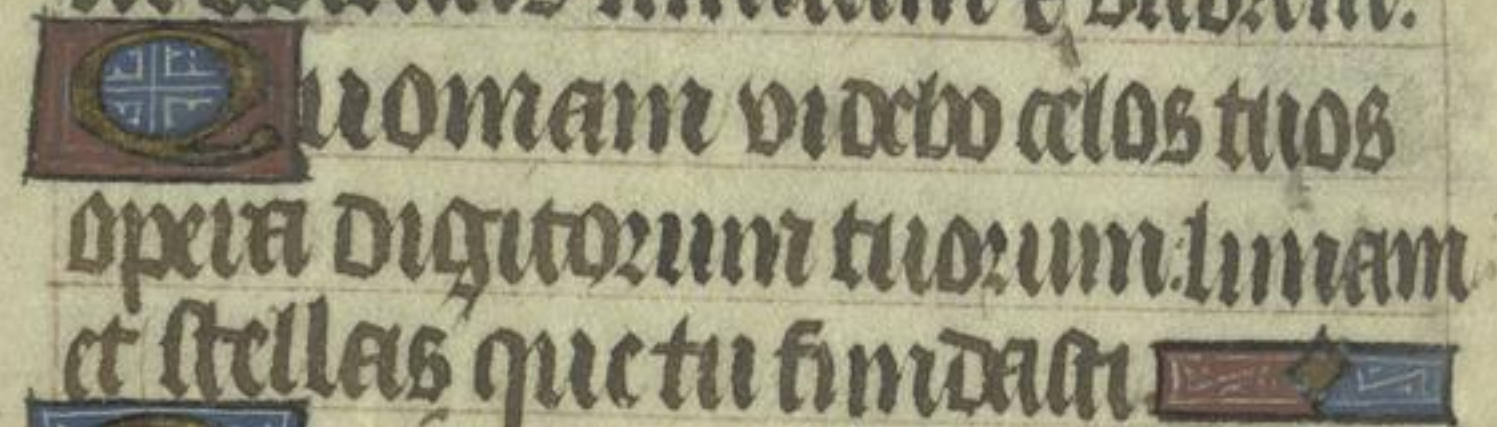 inimicum & ultorem.
Quoniam videbo celos tuos
opera digitorum tuorum: lunam
et stellas que tu fundasti